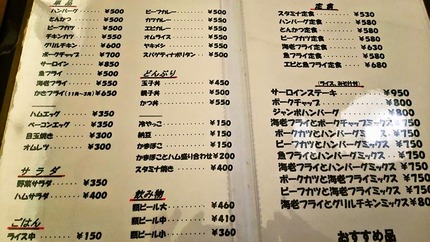 単品
ハンバーグ ¥500
とんかつ ¥500
ビーフカツ ¥500
チキンカツ ¥500
グリルチキン ¥600
ポークチャップ ¥700
サーロイン ¥850
魚フライ ¥500
海老フライ ¥550
かきフライ(11月〜3月) ¥650
ハムエッグ ¥350
ベーコンエッグ ¥350
目玉焼き ¥300
オムレツ ¥300
サラダ
野菜サラダ ¥350
ハムサラダ ¥400
ごはん
ライス中 ¥150
ビーフカレー ¥500
カツカレー ¥550
エビカレー ¥550
オムライス ¥500
ヤキメシ ¥550
スパゲティナポリタン ¥500
どんぶり
玉子丼 ¥450
親子丼 ¥500
かつ丼 ¥550
冷やっこ ¥150
納豆 ¥150
かまぼこ ¥150
かまぼことハム盛り合わせ ¥200
スタミナ焼き ¥400
飲み物
瓶ビール大 ¥460
瓶ビール中 ¥410
瓶ビール小 ¥360
定食
スタミナ定食 ¥530
ハンバーグ定食 ¥580
とんかつ定食 ¥580
ビーフカツ定食 ¥580
海老フライ定食 ¥630
魚フライ定食 ¥580
エビと魚フライ定食 ¥680
(ライス、みそ汁付)
サーロインステーキ ¥950
ポークチャップ ¥800
ジャンボハンバーグ ¥800
海老フライとポークチャップ ¥750
ポークカツとハンバーグミックス ¥750
ビーフカツとハンバーグミックス ¥750
魚フライとハンバーグミックス ¥750
海老フライとハンバーグミックス ¥750
ポークカツと海老フライミックス ¥750
ビーフカツと海老フライミックス ¥750
海老フライとグリルチキンミックス ¥80
おすすめ品